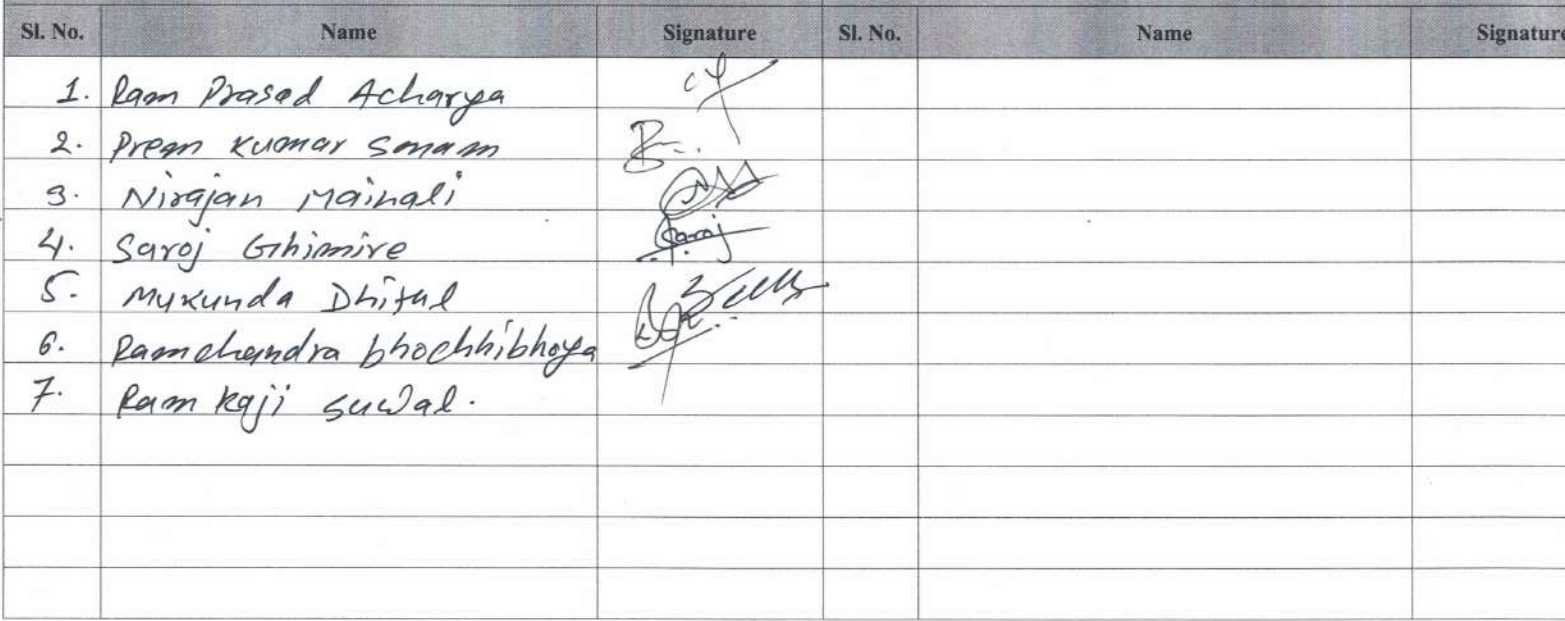 Sl. No. Name Signature Sl. No. Name Signature
1. Ram Prasad Acharya
2. Prem Kumar Sonam
3. Nirajan Mainali
4. Saroj Ghimire Saroj
5. Mukunda Dhital
6. Ramchandra bhochhibhoya
7. Ram Kaji suwal.